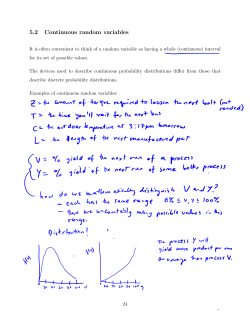 5.2 Continuous random variables
It is often convenient to think of a random variable as having a whole (continuous) interval
for its set of possible values.
The devices used to describe continuous probability distributions differ from those that
describe discrete probability distributions.
Examples of continuous random variables:
Z = the amount of torque required to loosen the next bolt (not
rounded)
T = the time you'll wait for the next bus
C = the outdoor temperature at 3:17pm tomorrow
L = the length of the next manufactured part
V = % yield of the next run of a process
Y = % yield of the next run of some better process
how do we mathematically distinguish V and Y?
- each has the same range 0% ≤ V, Y ≤ 100%
- there are uncountably many possible values in this
range.
Distribution!
The process Y will
yield more product per run
on average than process V.
24